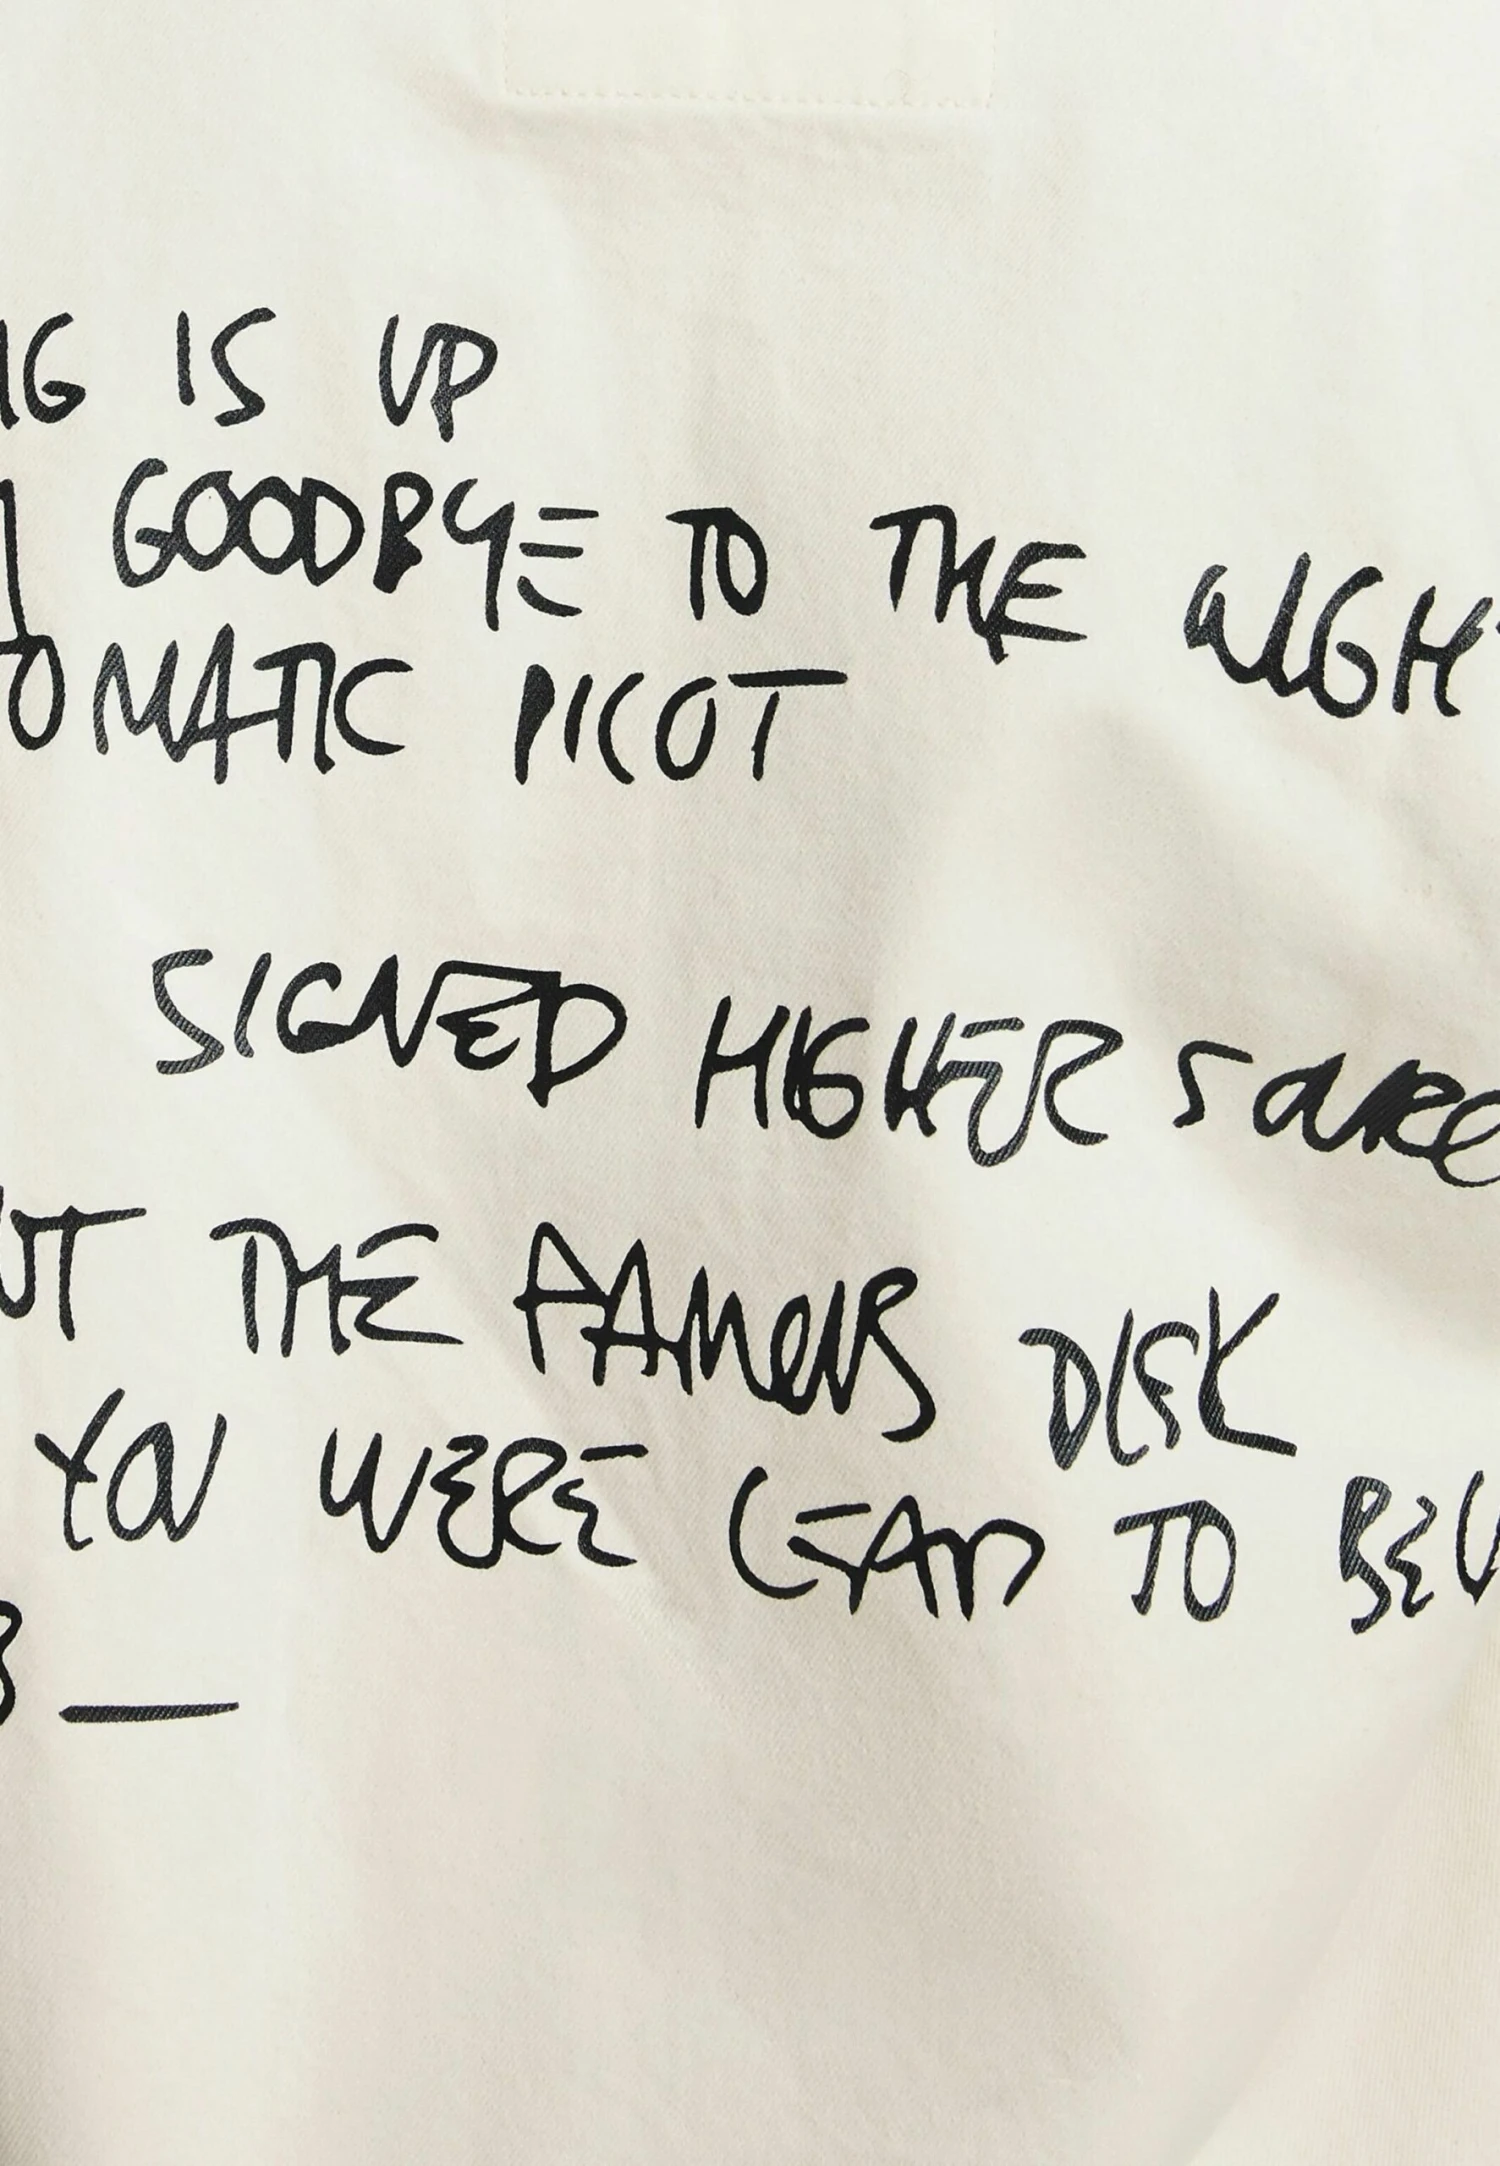 IG IS UP
GOODBYE TO THE NIGHT
OMATIC PILOT
SIGNED HIGHER SOURC
UT THE FAMOUS DISK
YOU WERE LEAD TO BEL